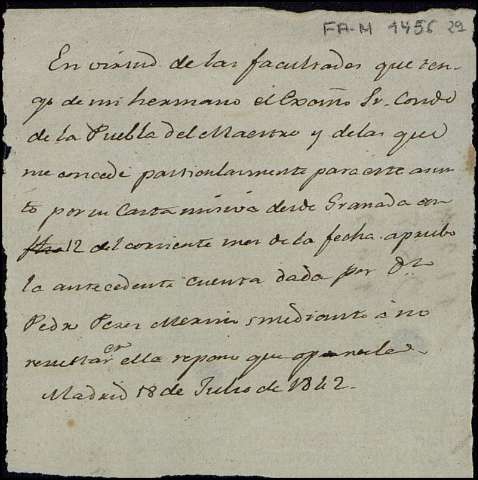 FA-M 1456 29
En virtud de las facultades que ten-
go de mi hermano el Excmo Sr. Conde
de la Puebla del Maestre y de las que
me concede particularmente para este asun-
to por su Carta misiva desde Granada con
12 del corriente mes de la fecha. apruebo
la antecedente cuenta dada por Dn
Pedro Perez mediante á no
resultar en ella reparo que
Madrid 18 de Julio de 1842.